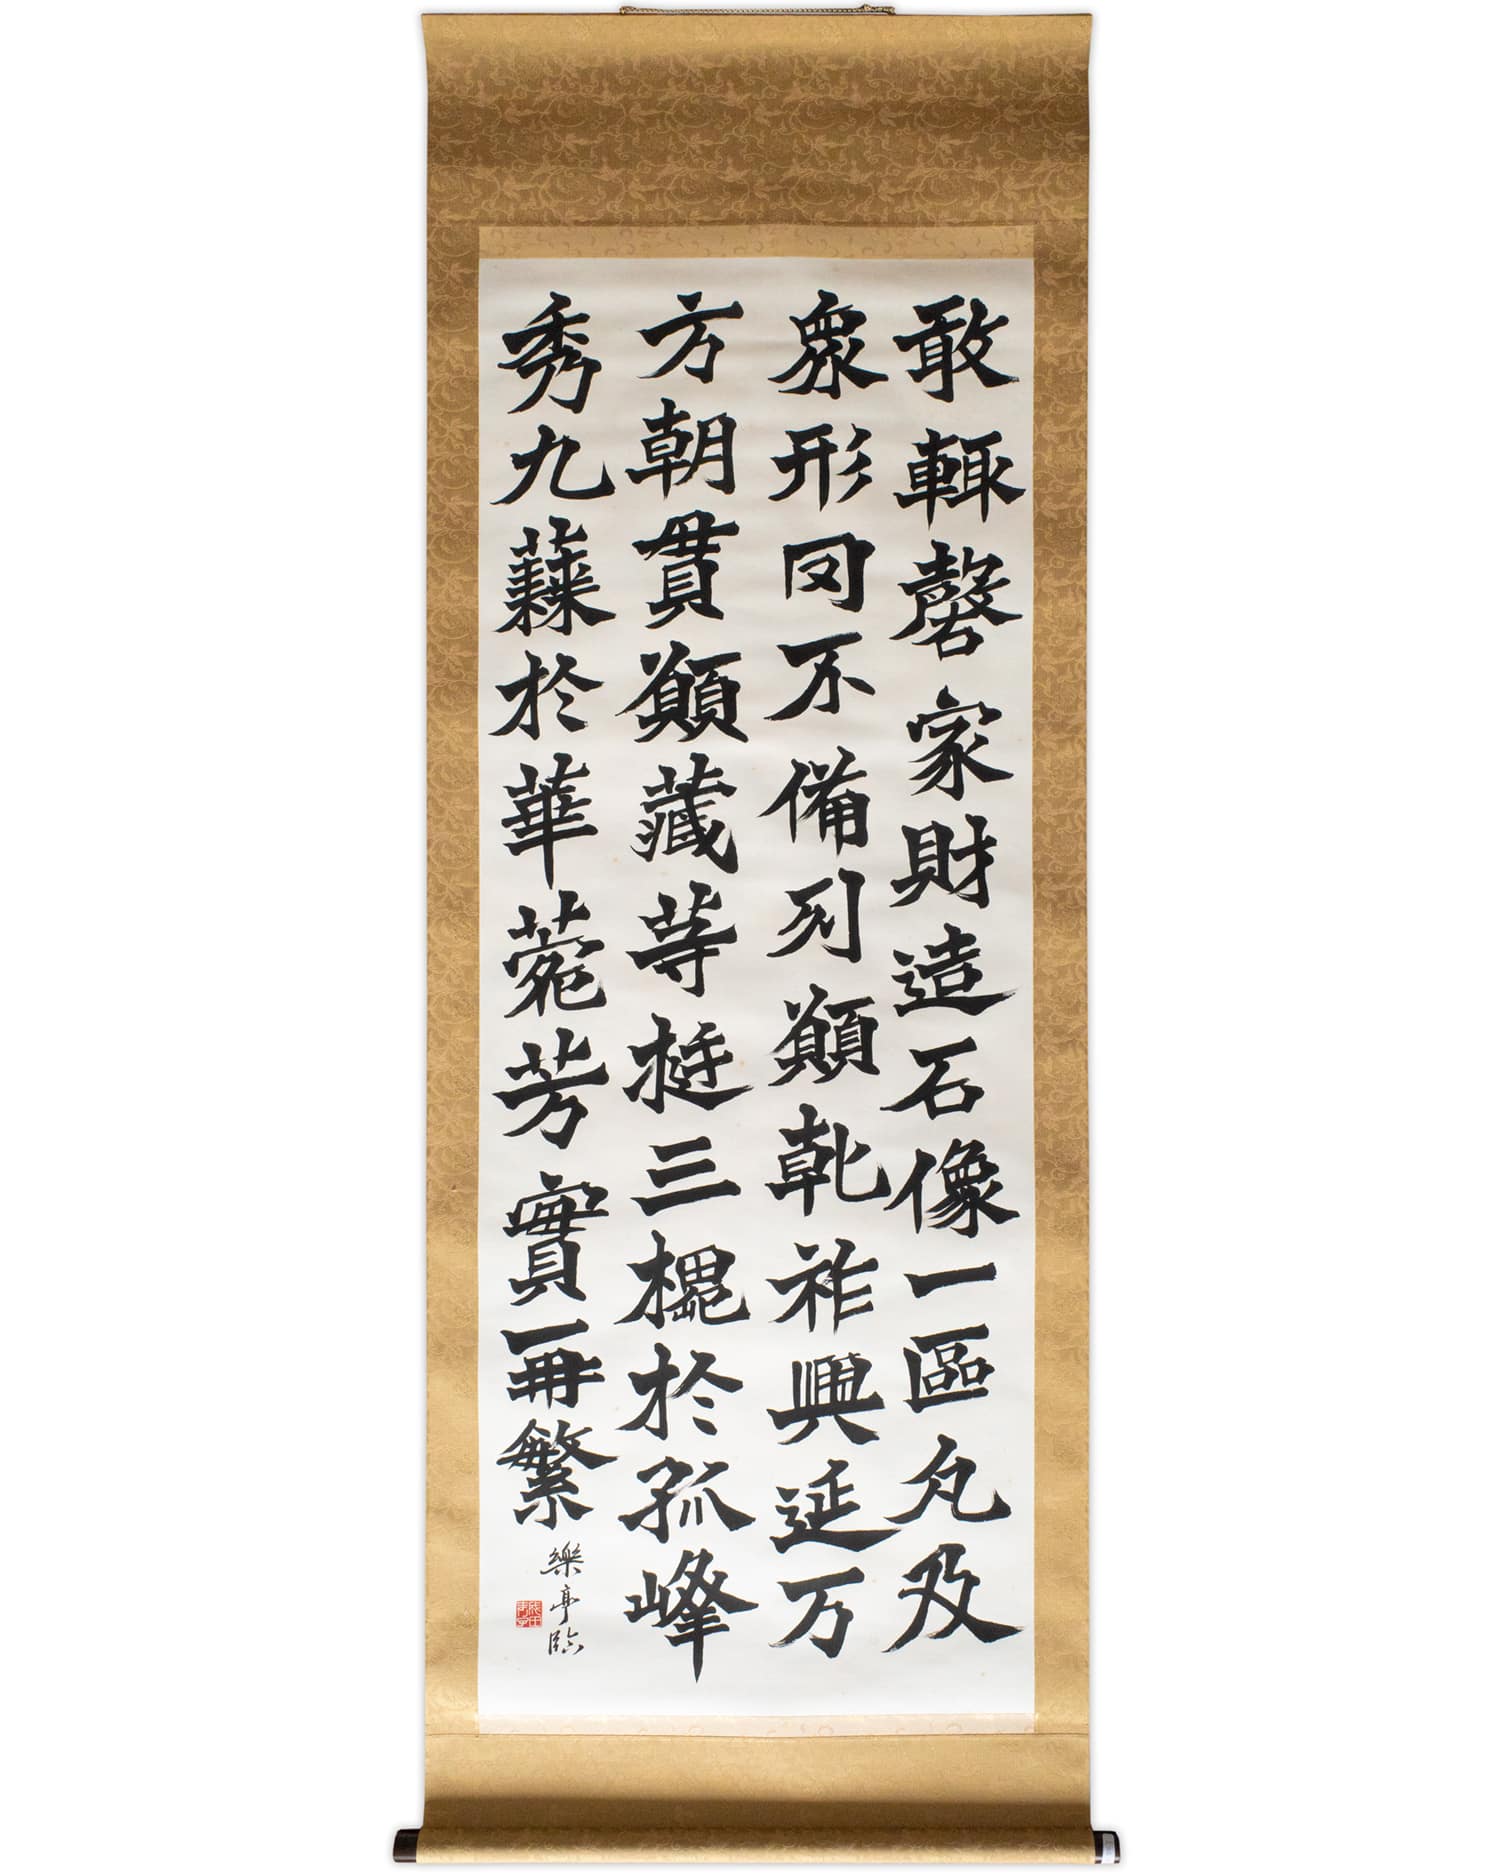 敢輒罄家財造石像一區凡及
衆形罔不備列願乾祚興延万
方朝貫願藏等挺三槐於孤峰
秀九蕀於華菀芳實再繁
樂亭臨